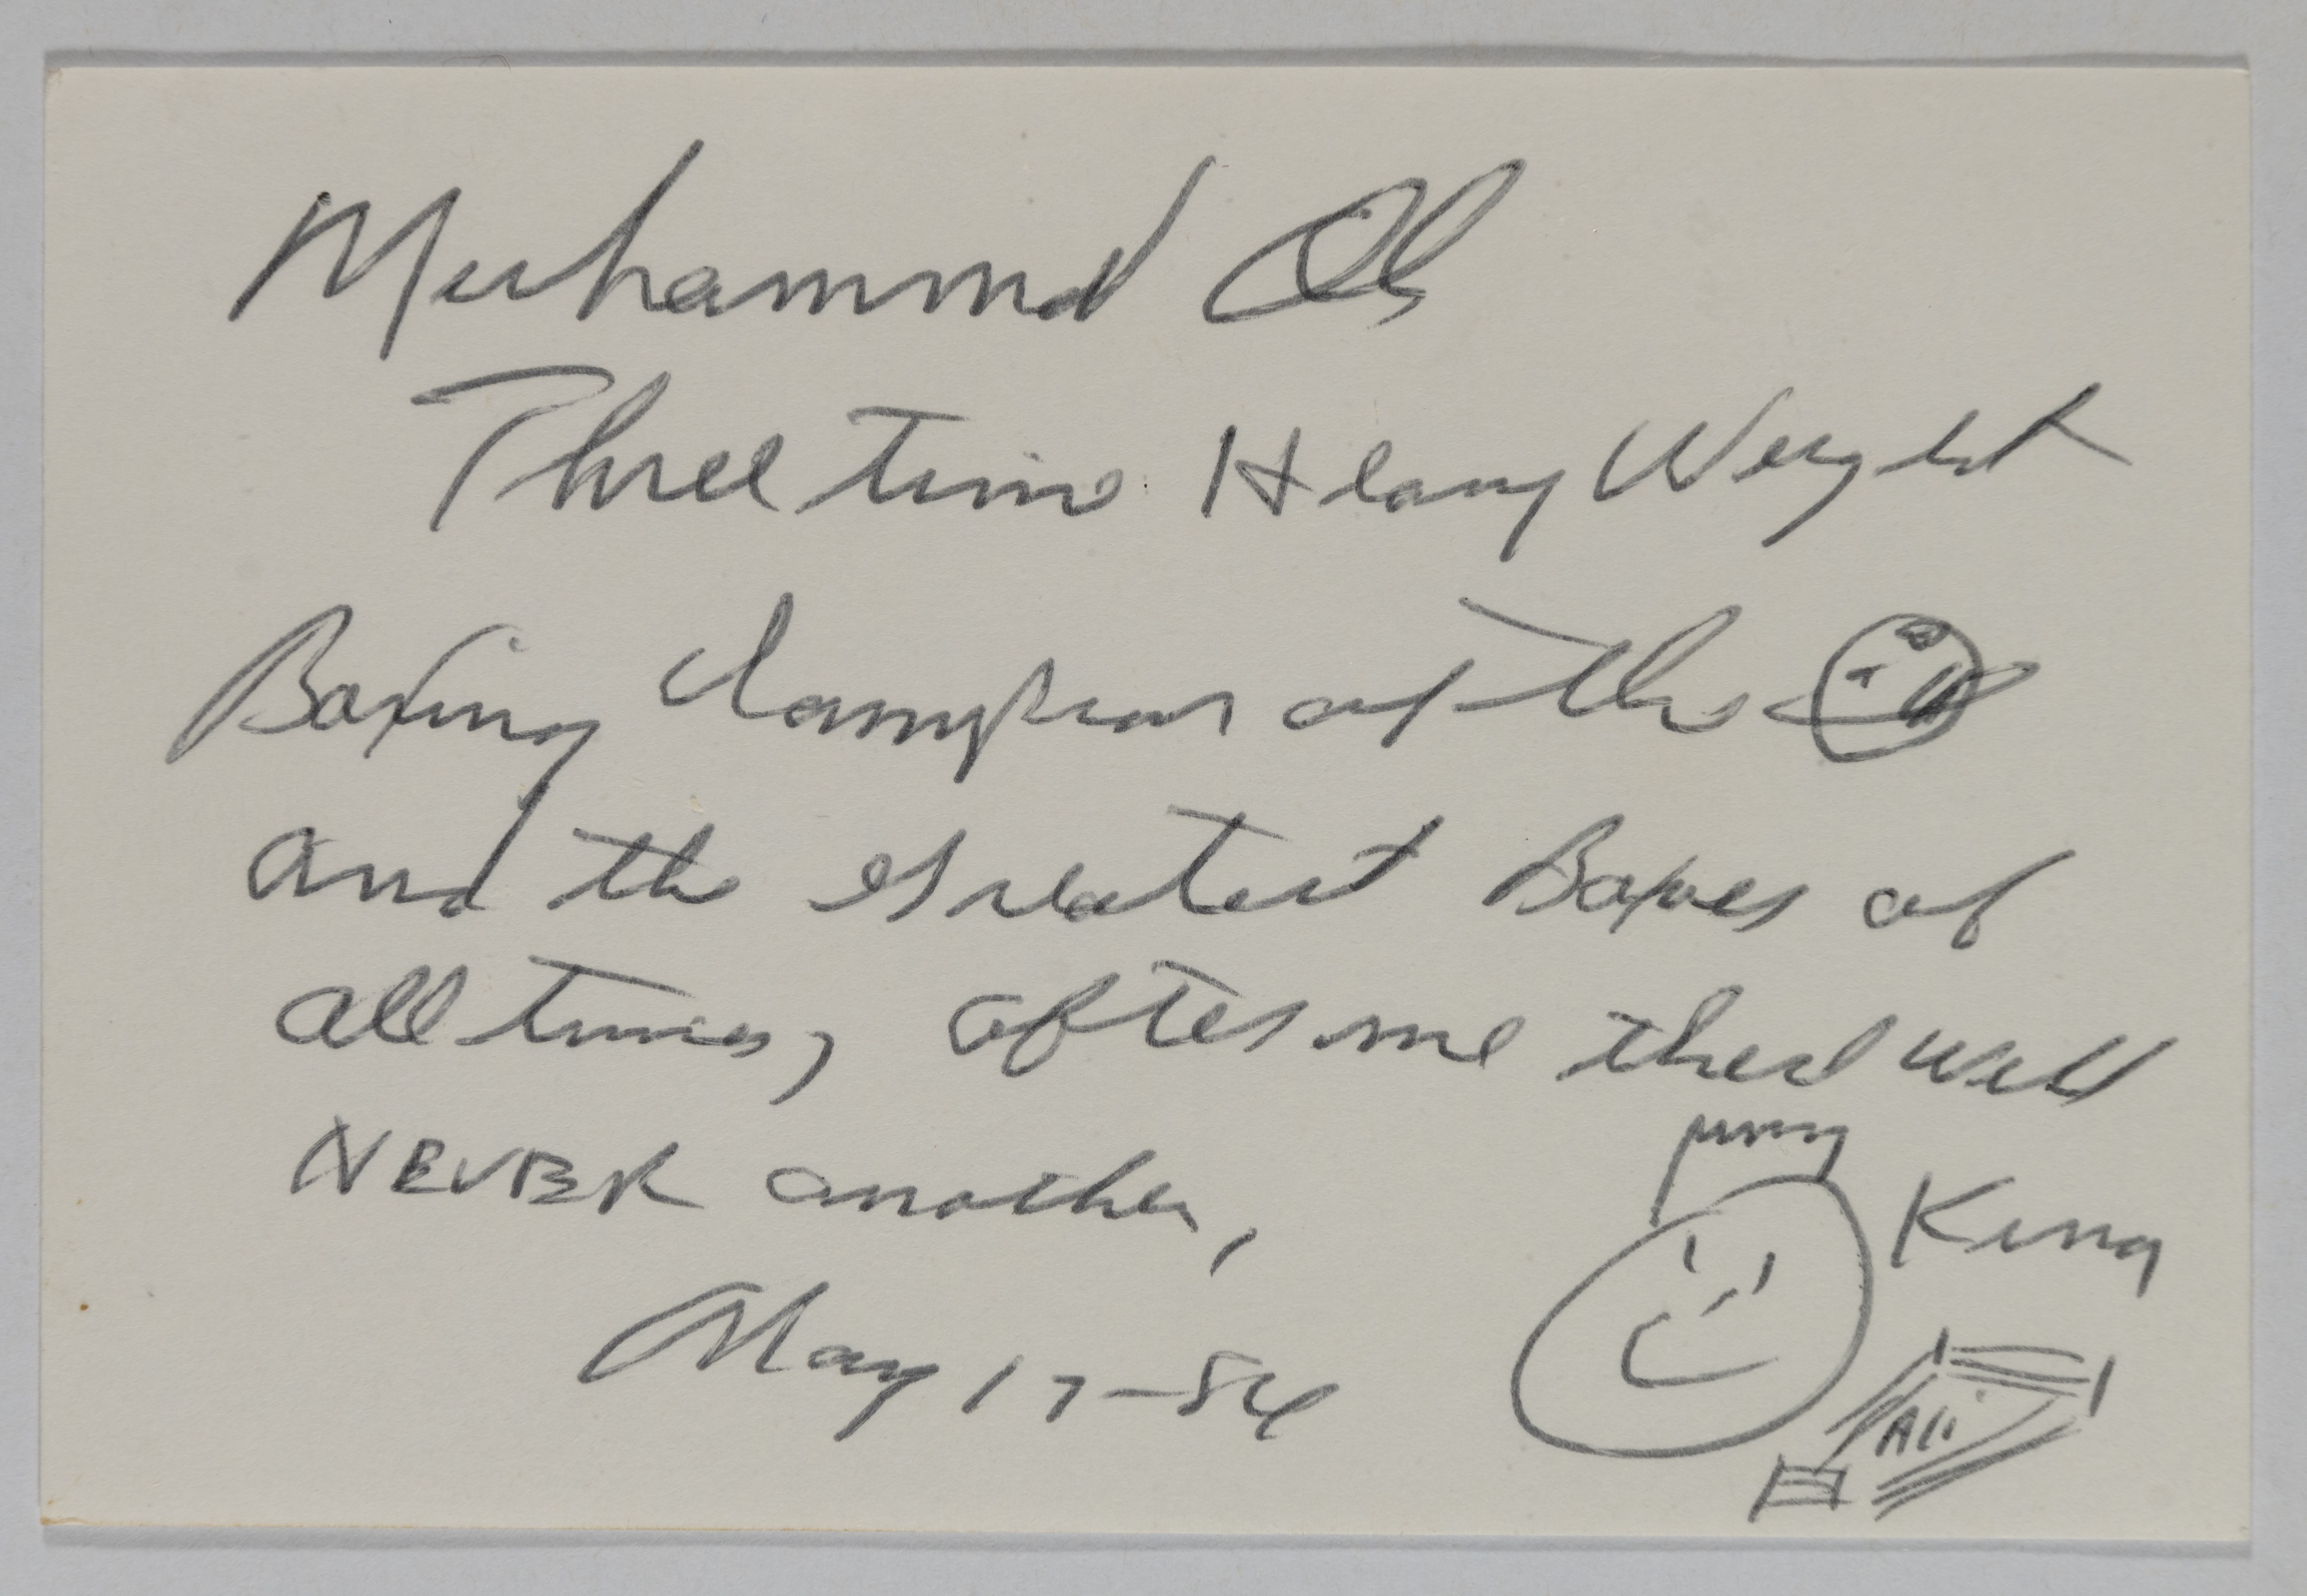 Muhammad Ali
Three time Heavy Weight
Boxing Champion of the
and the Greatest Boxer of
all times, after me there will
NEVER another,
May 17-84
King
Ali